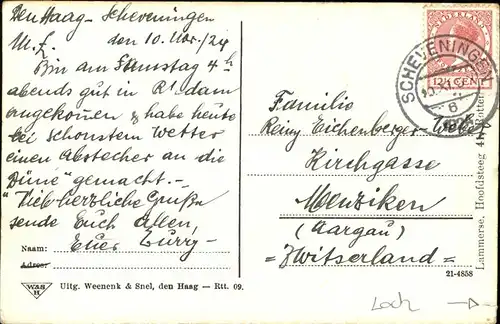 Den Haag - Scheveningen
M. L. den 10. Nov./24
Bin am Samstag 4 h
abends gut in R'dam
angekommen & habe heute
bei schönstem Wetter
einen Abstecher an die
Düne gemacht. -
Viel herzliche Grüsse
sende Euch allen,
Euer Curry -
Naam:
Adres:
W&S
H
Uitg. Weenenk & Snel, den Haag — Rtt. 09.
NEDERLAND
12½ CENT
SCHEVENINGEN
10.XI
6
Familie
Reiny Eichenberger-Weber
Kirchgasse
Menziken
(Aargau)
= Zwitserland =
21-4858
Lammerse, Hoofdsteeg
Loch